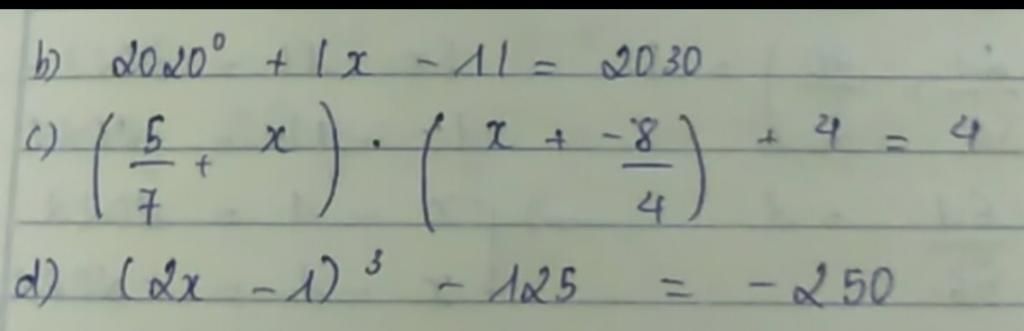 b) 2020⁰ + |x - 1| = 2030
c) (5/7 + x) . (x + -8/4) + 4 = 4
d) (2x - 1)³ - 125 = -250